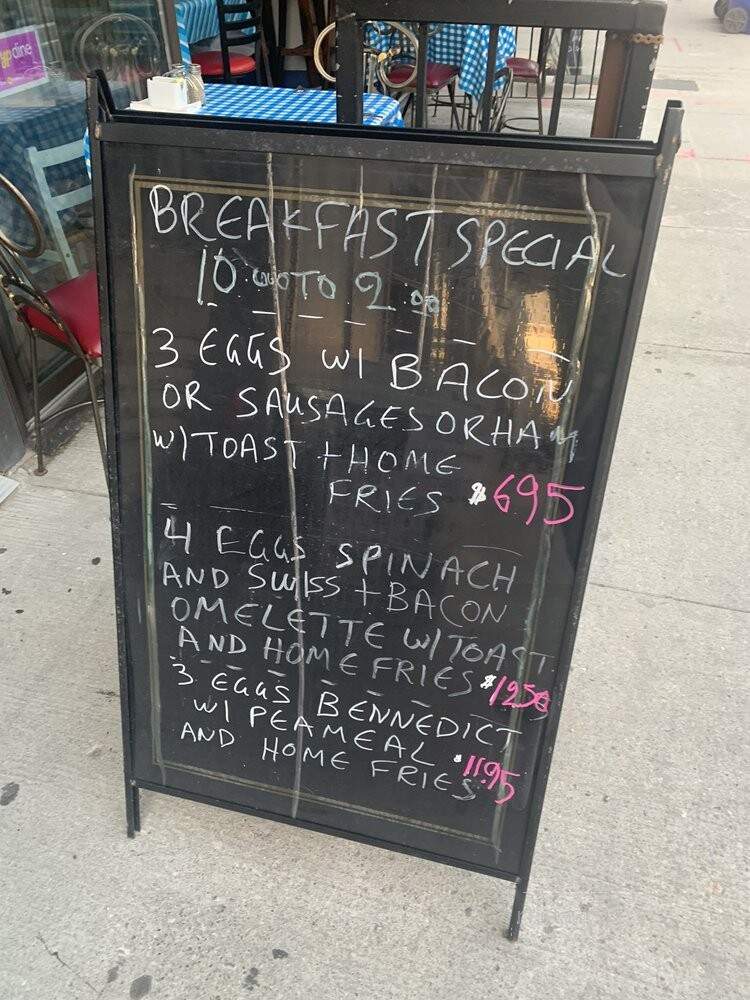 BREAKFAST SPECIAL
10:00 TO 2:00
3 EGGS W/ BACON
OR SAUSAGES OR HAM
W/ TOAST + HOME
FRIES $695
4 EGGS SPINACH
AND SWISS + BACON
OMELETTE W/ TOAST
AND HOME FRIES $1250
3 EGGS BENNEDICT
W/ PEAMEAL
AND HOME FRIES $1195